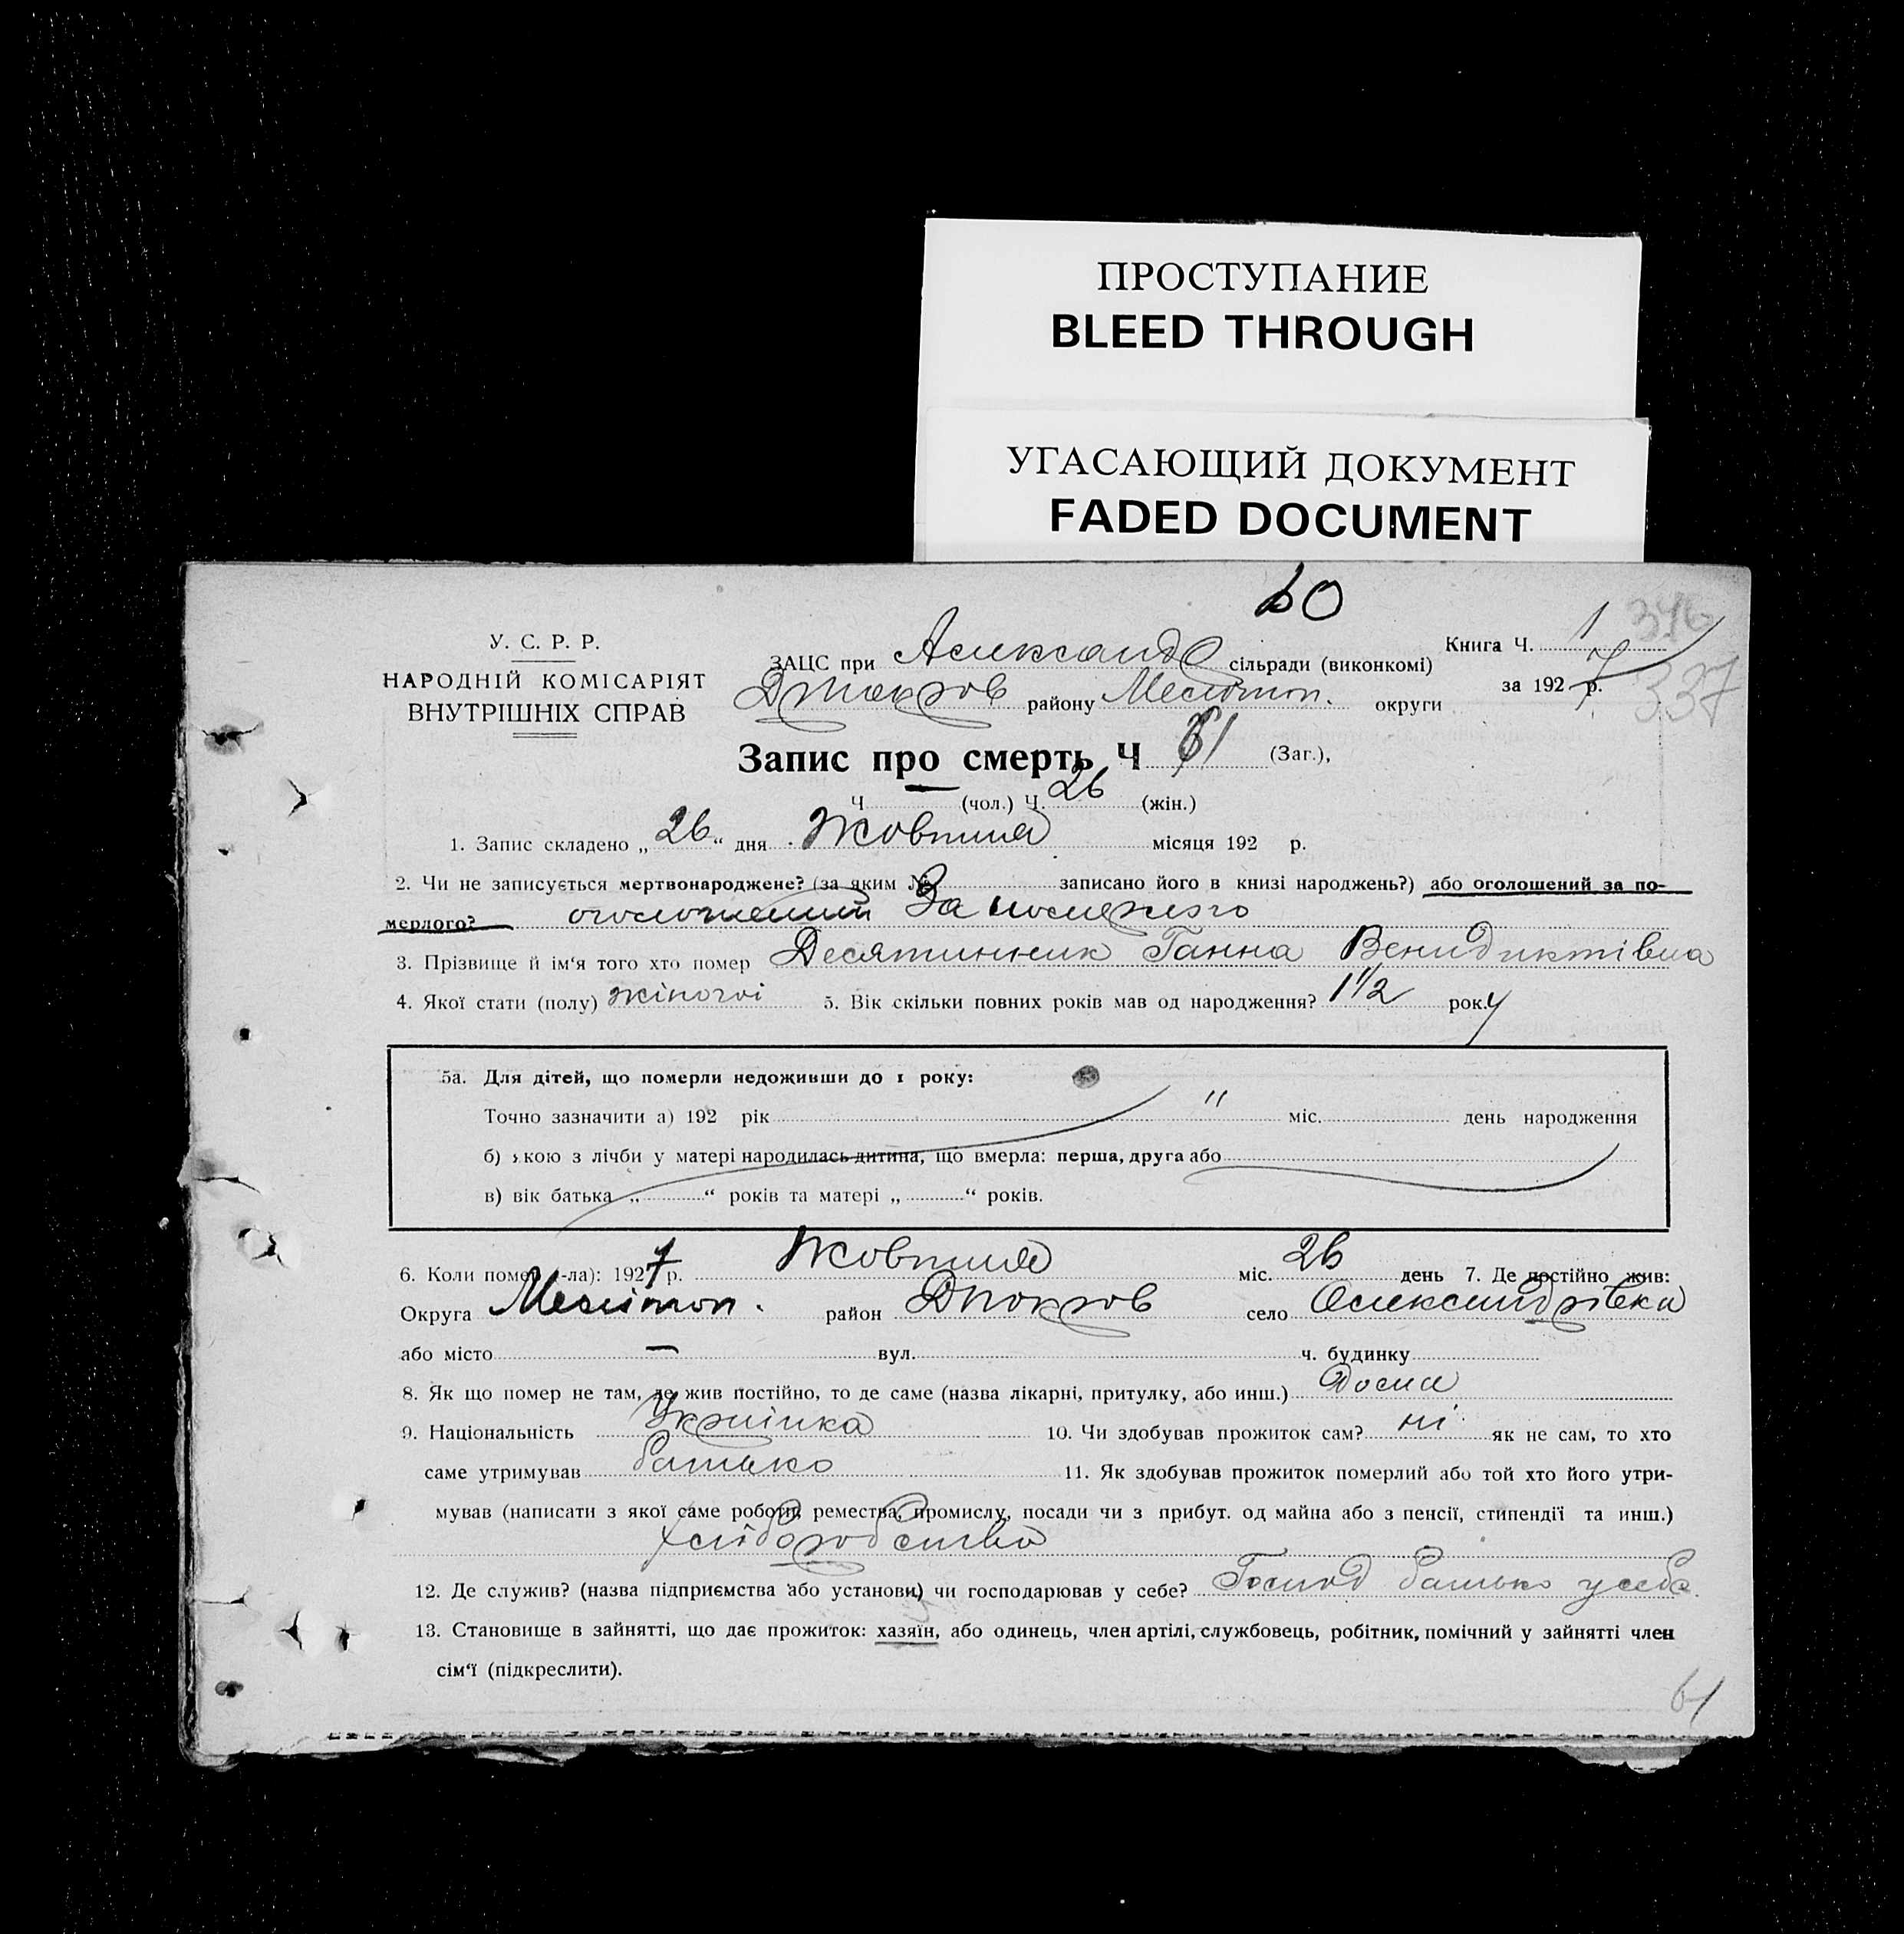 ПРОСТУПАНИЕ
BLEED THROUGH
УГАСАЮЩИЙ ДОКУМЕНТ
FADED DOCUMENT
60
346
337
У. С. Р. Р.
НАРОДНІЙ КОМІСАРІЯТ
ВНУТРІШНІХ СПРАВ
ЗАЦС при Александр сільради (виконкомі)
Книга Ч. 1
району Мелітоп. округи
за 1927 р.
Запис про смерть Ч 61 (Заг.),
Ч (чол.) Ч. 26 (жін.)
1. Запис складено „ 26 “ дня Жовтня місяця 192 р.
2. Чи не записується мертвонароджене? (за яким № записано його в книзі народжень?) або оголошений за по-
мерлого? оголошений За
3. Прізвище й ім‘я того хто помер Десятинник Ганна Венидиктівна
4. Якої стати (полу) жіночої 5. Вік скільки повних років мав од народження? 1 1/2 року
5а. Для дітей, що померли недоживши до 1 року:
Точно зазначити а) 192 рік " міс. день народження
б) якою з лічби у матері народилась дитина, що вмерла: перша, друга або
в) вік батька „ “ років та матері „ “ років.
6. Коли помер (-ла): 1927 р. Жовтня міс. 26 день 7. Де постійно жив:
Округа Мелітоп. район Дпокров село Олександрівка
або місто — вул. ч. будинку
8. Як що помер не там, де жив постійно, то де саме (назва лікарні, притулку, або инш.) Дома
9. Національність Україінка 10. Чи здобував прожиток сам? ні як не сам, то хто
саме утримував батько 11. Як здобував прожиток померлий або той хто його утри-
мував (написати з якої саме роботи, ремества, промислу, посади чи з прибут. од майна або з пенсії, стипендії та инш.)
хліборобство
12. Де служив? (назва підприємства або установи) чи господарював у себе? Господ батько у себе.
13. Становище в зайнятті, що дає прожиток: хазяїн, або одинець, член артілі, службовець, робітник, помічний у зайнятті член
сім‘ї (підкреслити).
61